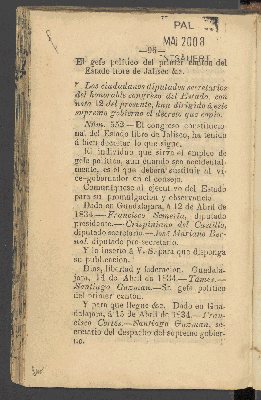 PAL
MAI 2008
ENTSÄUERT
—96—
El gefe político del primer canton del
Estado libre de Jalisco &c.
Los ciudadanos diputados secretarios
del honorable congreso del Estado, con
nota 12 del presente, han dirigido á este
supremo gobierno el decreto que copio.
Núm. 552—El congreso constitucio-
nal del Estado libre de Jalisco, ha tenido
á bien decretar lo que sigue.
El individuo que sirva el empleo de
gefe político, aun cuando sea accidental-
mente, es el que deberá sustituir al vi-
ce-gobernador en el consejo.
Comuníquese al ejecutivo del Estado
para su promulgacion y observancia.
Dado en Guadalajara, á 12 de Abril de
1834.—Francisco Semeria, diputado
presidente.—Crispiniano del Castillo,
diputado secretario.—José Mariano Ber-
nal, diputado pro-secretario.
Y lo inserto á V. S. para que disponga
su publicacion.
Dios, libertad y federacion. Guadala-
jara, 14 de Abril de 1834.—Tames.—
Santiago Guzman.—Sr. gefe político
del primer canton.
Y para que llegue &c. Dado en Gua-
dalajara, á 15 de Abril de 1834.—Fran-
cisco Cortés.—Santiago Guzman, se-
cretario del despacho del supremo gobier-
no.